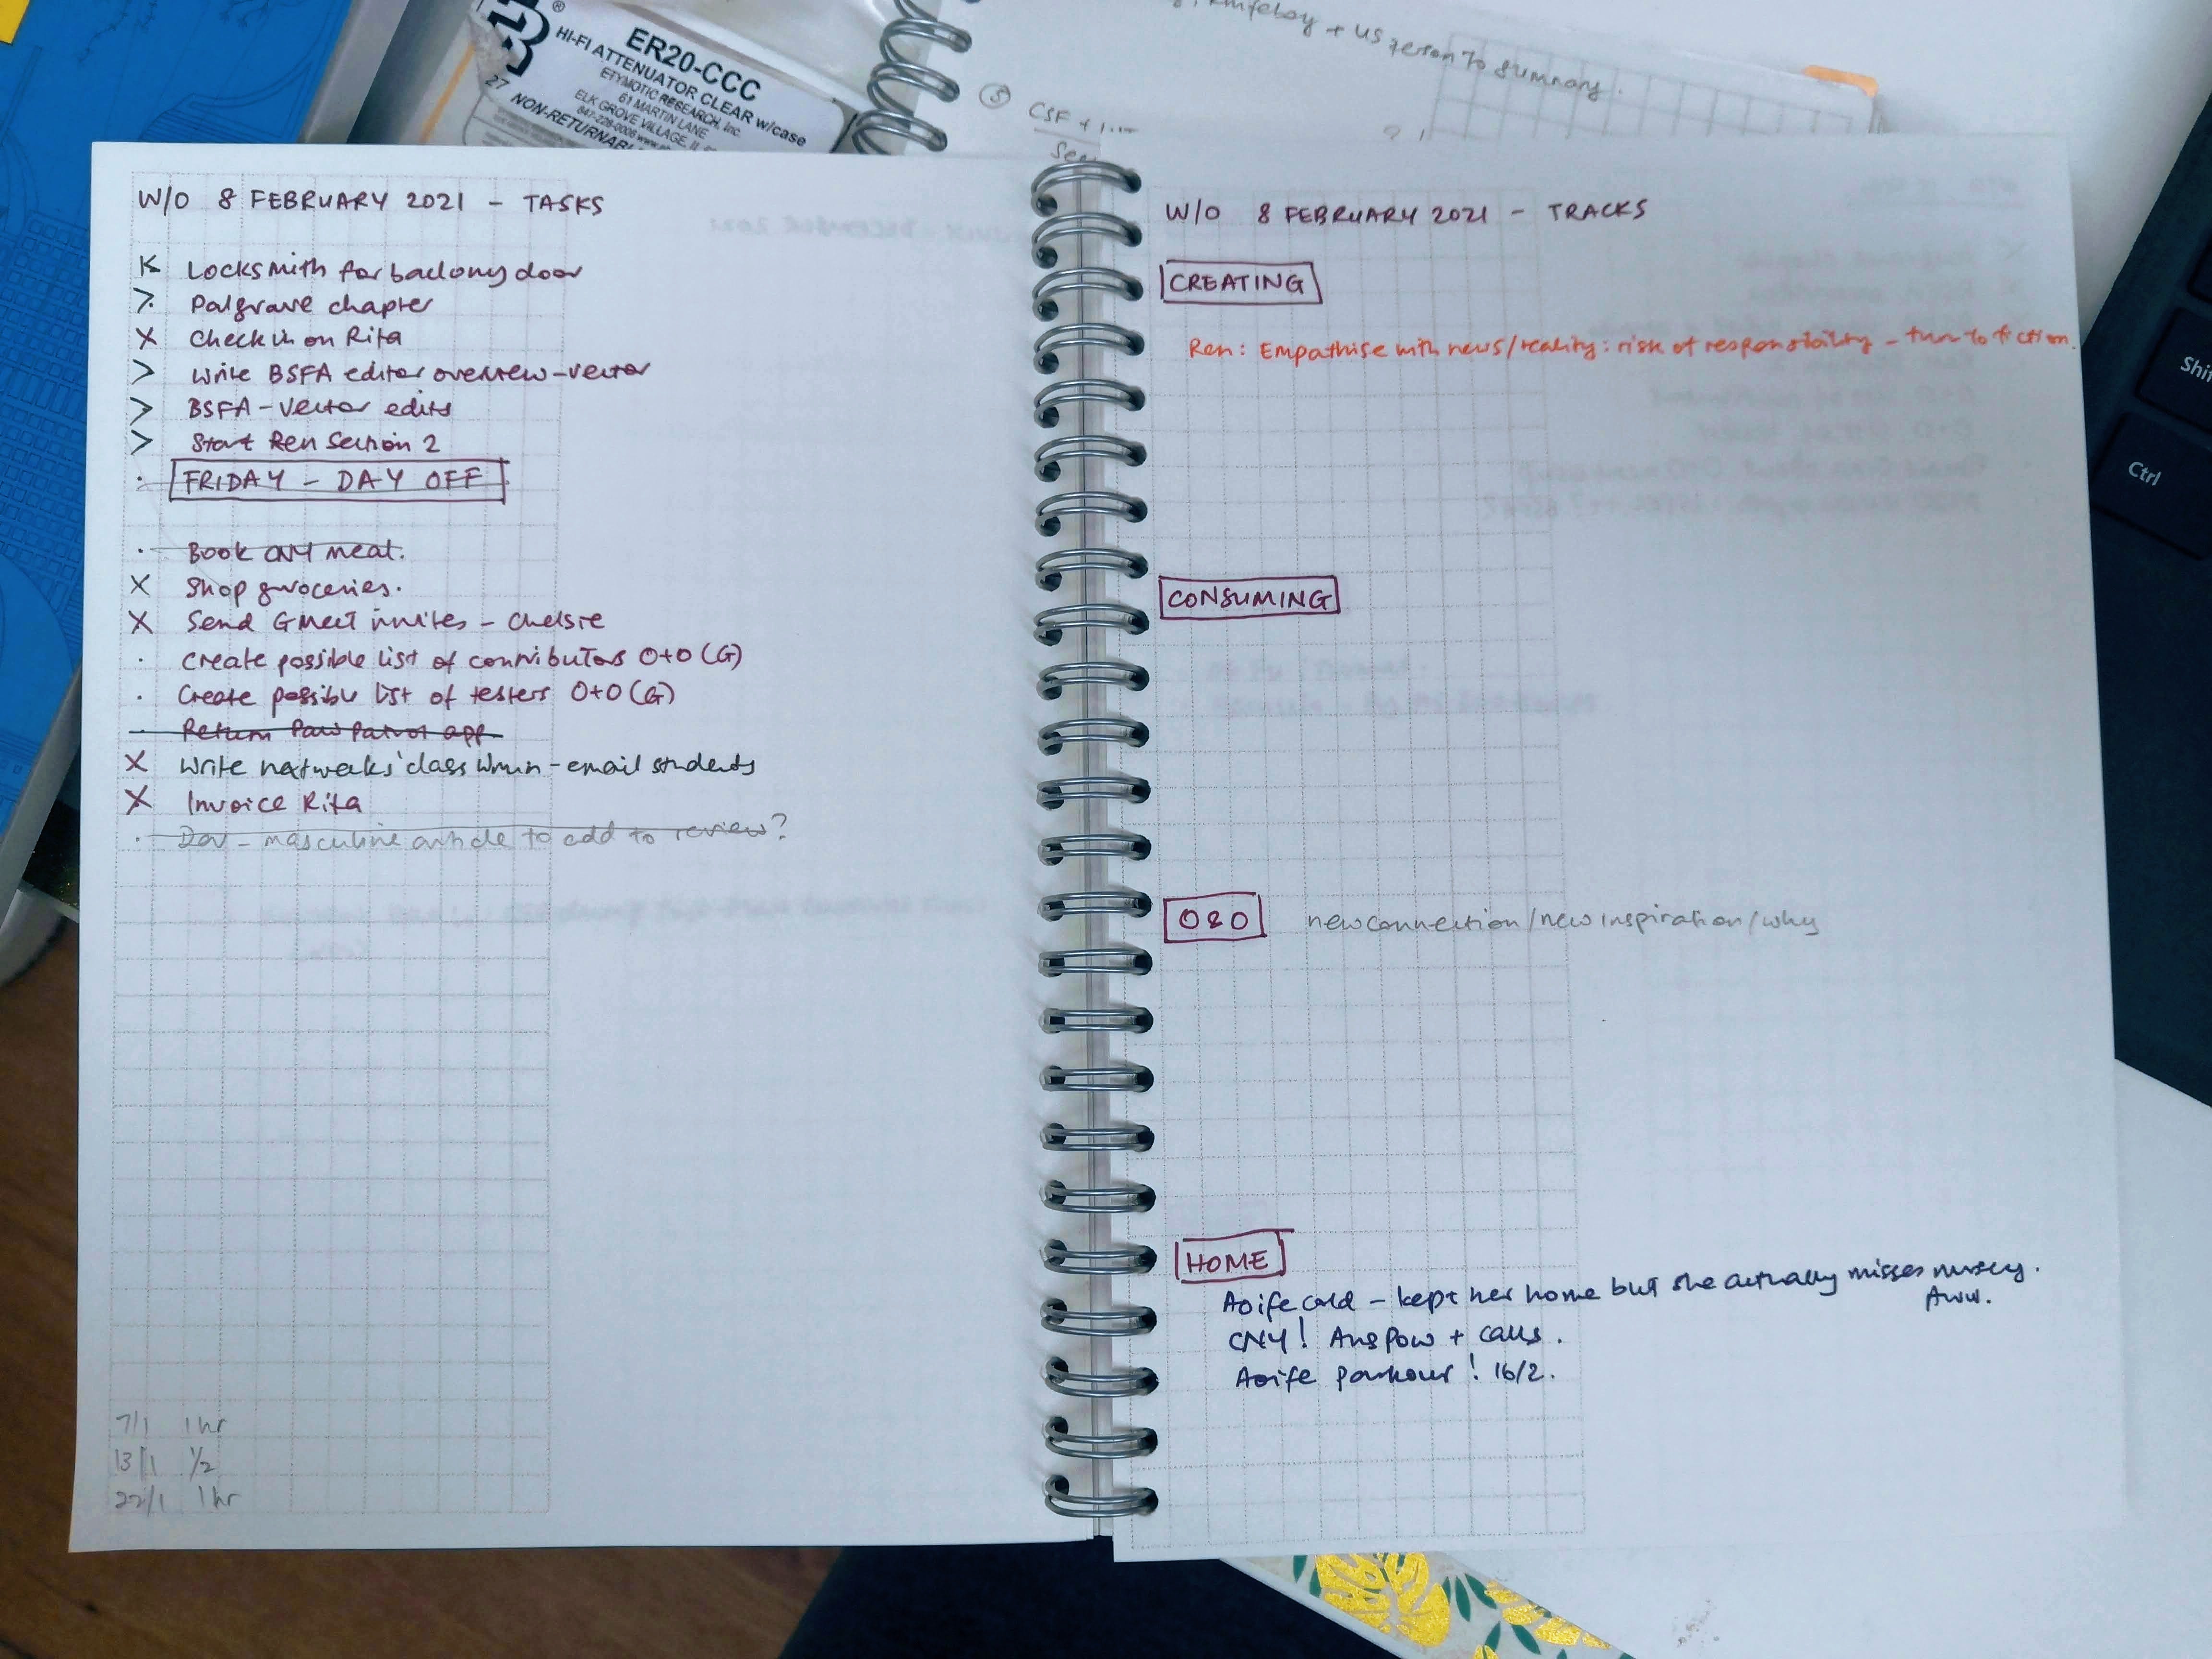 ER20-CCC
HI-FI ATTENUATOR CLEAR w/case
ETYMOTIC RESEARCH, Inc.
61 MARTIN LANE
ELK GROVE VILLAGE, IL
847-228-0006 www.
27 NON-RETURNABL
+ US person to summary.
5 CSF +
W/O 8 FEBRUARY 2021 - TASKS
Locksmith for baclony door
> Palgrave chapter
X Check in on Rita
> Write BSFA editor overview - vector
> BSFA - Vector edits
> Start Ren Section 2
· FRIDAY - DAY OFF
· Book CNY meal.
X Shop groceries.
X Send GMeet invites - Chelsie
· Create possible list of contributors O+O (G)
· Create possible list of testers O+O (G)
· Return Paw Patrol app
X Write networks' class - email students
X Invoice Rita
· Dev - masculine article to add to review?
7/1 1 hr
13/1 1/2
22/1 1 hr
W/O 8 FEBRUARY 2021 - TRACKS
CREATING
Ren: Empathise with news/reality: risk of responsibility - turn to fiction.
CONSUMING
O&O new connection/new inspiration/why
HOME
Aoife cold - kept her home but she actually misses nursery.
Aww.
CNY! Ang Pow + calls.
Aoife parkour! 16/2.
Shif
Ctrl